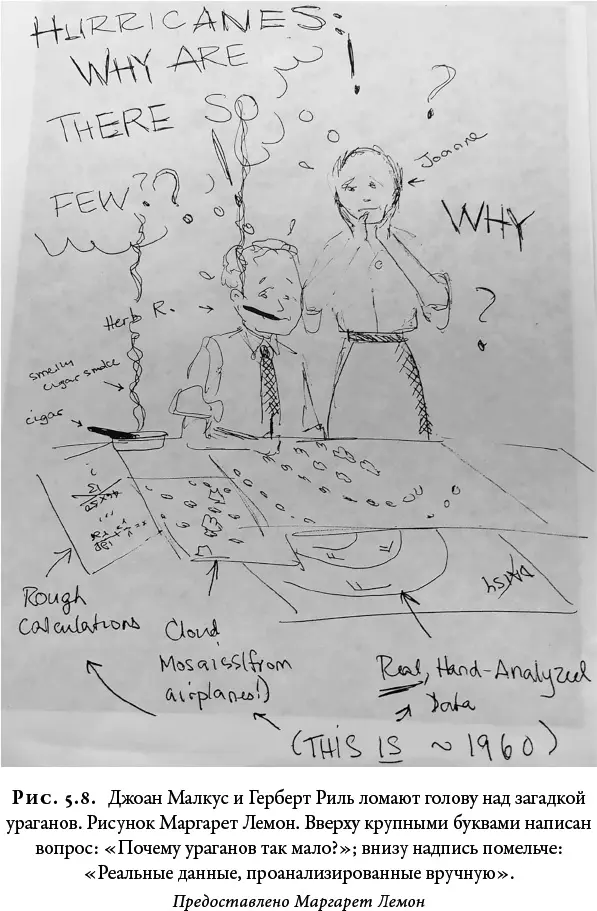 HURRICANES:
WHY ARE
THERE SO
FEW??
!
?
Joanne
WHY
?
Herb R.
smelly
cigar smoke
cigar
Rough
Calculations
Cloud
Mosaiss(from
airplanes!)
Real, Hand-Analyzed
Data
(THIS IS ~ 1960)
Рис. 5.8. Джоан Малкус и Герберт Риль ломают голову над загадкой
ураганов. Рисунок Маргарет Лемон. Вверху крупными буквами написан
вопрос: «Почему ураганов так мало?»; внизу надпись помельче:
«Реальные данные, проанализированные вручную».
Предоставлено Маргарет Лемон